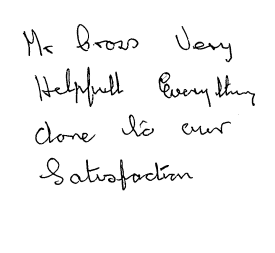 Mr Cross Very
Helpfull Everything
done to our
Satisfaction